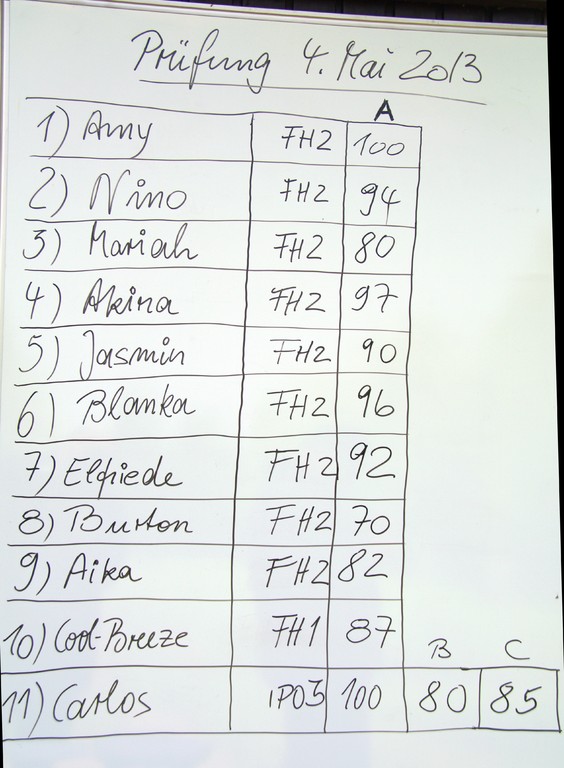 Prüfung 4. Mai 2013
A
1) Amy FH2 100
2) Nino FH2 94
3) Mariah FH2 80
4) Akina FH2 97
5) Jasmin FH2 90
6) Blanka FH2 96
7) Elfriede FH2 92
8) Burton FH2 70
9) Aika FH2 82
10) Cool-Breeze FH1 87
B C
11) Carlos IPO3 100 80 85